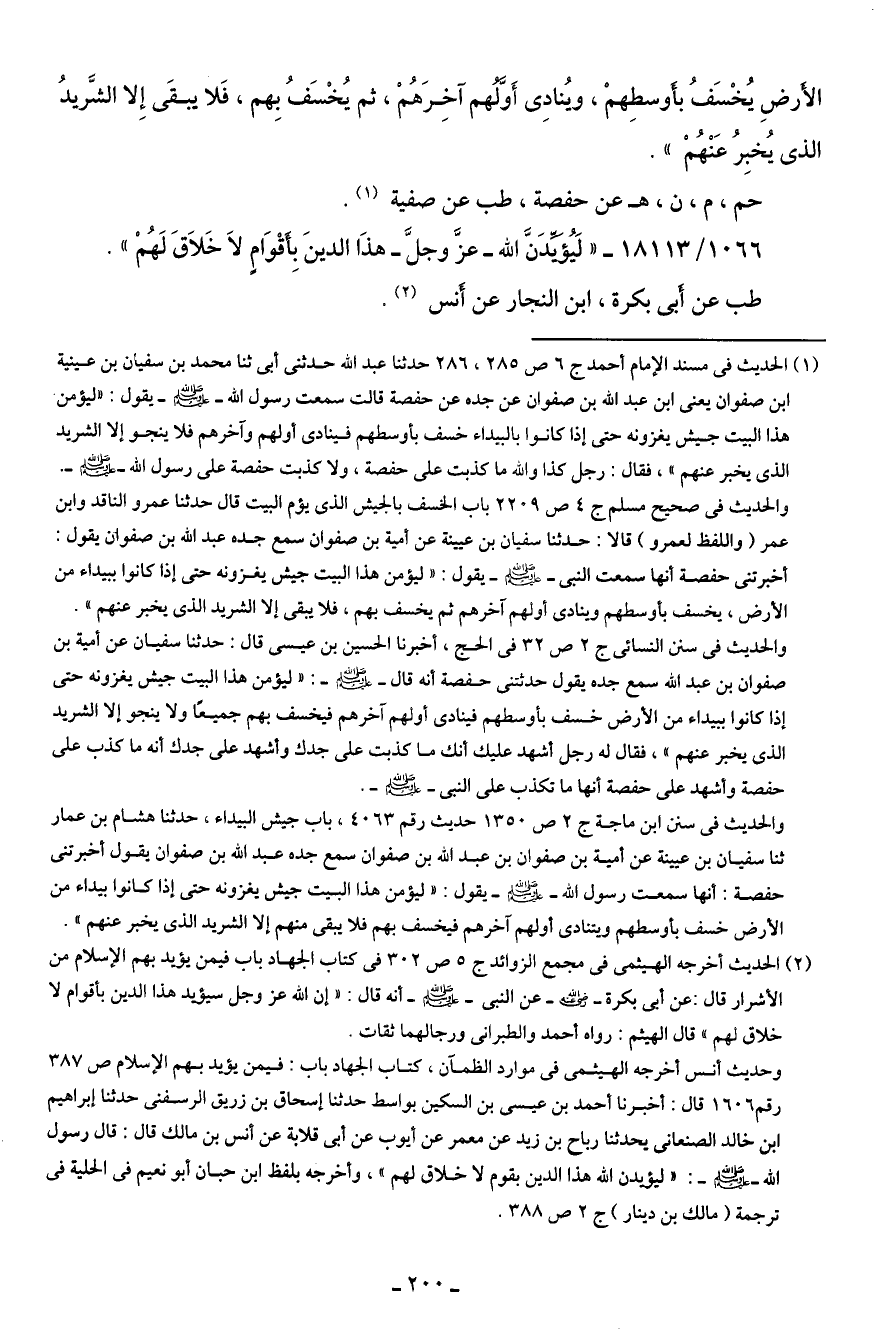 الأَرضِ يُخْسَفُ بأَوسطِهِمْ ، ويُنادِى أَوَّلُهم آخِرَهُمْ ، ثم يُخْسَفُ بِهم ، فَلا يبقَى إِلا الشَّرِيدُ
الذى يُخبِرُ عَنْهُمْ » .
حم ، م ، ن ، هـ عن حفصة ، طب عن صفية (١) .
١٨١١٣/١٠٦٦ ـ « لَيُؤَيِّدَنَّ الله ـ عزَّ وجلَّ ـ هذَا الدينَ بِأَقْوَامٍ لاَ خَلاَقَ لَهُمْ » .
طب عن أَبى بكرة ، ابن النجار عن أَنس (٢) .
(١) الحديث فى مسند الإمام أحمد ج ٦ ص ٢٨٥ ، ٢٨٦ حدثنا عبد الله حدثنى أبى ثنا محمد بن سفيان بن عينية
ابن صفوان يعنى ابن عبد الله بن صفوان عن جده عن حفصة قالت سمعت رسول الله ـ ﷺ ـ يقول : «ليؤمن
هذا البيت جيش يغزونه حتى إذا كانوا بالبيداء خسف بأوسطهم فينادى أولهم وآخرهم فلا ينجو إلا الشريد
الذى يخبر عنهم » ، فقال : رجل كذا والله ما كذبت على حفصة ، ولا كذبت حفصة على رسول الله ـ ﷺ ـ.
والحديث فى صحيح مسلم ج ٤ ص ٢٢٠٩ باب الخسف بالجيش الذى يؤم البيت قال حدثنا عمرو الناقد وابن
عمر ( واللفظ لعمرو ) قالا : حدثنا سفيان بن عيينة عن أمية بن صفوان سمع جده عبد الله بن صفوان يقول :
أخبرتنى حفصة أنها سمعت النبى ـ ﷺ ـ يقول : « ليؤمن هذا البيت جيش يغزونه حتى إذا كانوا ببيداء من
الأرض ، يخسف بأوسطهم وينادى أولهم آخرهم ثم يخسف بهم ، فلا يبقى إلا الشريد الذى يخبر عنهم » .
والحديث فى سنن النسائى ج ٢ ص ٣٢ فى الحج ، أخبرنا الحسين بن عيسى قال : حدثنا سفيان عن أمية بن
صفوان بن عبد الله سمع جده يقول حدثتنى حفصة أنه قال ـ ﷺ ـ : « ليؤمن هذا البيت جيش يغزونه حتى
إذا كانوا ببيداء من الأرض خسف بأوسطهم فينادى أولهم آخرهم فيخسف بهم جميعًا ولا ينجو إلا الشريد
الذى يخبر عنهم » ، فقال له رجل أشهد عليك أنك ما كذبت على جدك وأشهد على جدك أنه ما كذب على
حفصة وأشهد على حفصة أنها ما تكذب على النبى ـ ﷺ ـ .
والحديث فى سنن ابن ماجة ج ٢ ص ١٣٥٠ حديث رقم ٤٠٦٣ ، باب جيش البيداء ، حدثنا هشام بن عمار
ثنا سفيان بن عيينة عن أمية بن صفوان بن عبد الله بن صفوان سمع جده عبد الله بن صفوان يقول أخبرتنى
حفصة : أنها سمعت رسول الله ـ ﷺ ـ يقول : « ليؤمن هذا البيت جيش يغزونه حتى إذا كانوا بيداء من
الأرض خسف بأوسطهم ويتنادى أولهم آخرهم فيخسف بهم فلا يبقى منهم إلا الشريد الذى يخبر عنهم » .
(٢) الحديث أخرجه الهيثمى فى مجمع الزوائد ج ٥ ص ٣٠٢ فى كتاب الجهاد باب فيمن يؤيد بهم الإسلام من
الأشرار قال :عن أبى بكرة ـ رضي الله عنه ـ عن النبى ـ ﷺ ـ أنه قال : « إن الله عز وجل سيؤيد هذا الدين بأقوام لا
خلاق لهم » قال الهيثم : رواه أحمد والطبرانى ورجالهما ثقات .
وحديث أنس أخرجه الهيثمى فى موارد الظمآن ، كتاب الجهاد باب : فيمن يؤيد بهم الإسلام ص ٣٨٧
رقم ١٦٠٦ قال : أخبرنا أحمد بن عيسى بن السكين بواسط حدثنا إسحاق بن زريق الرسفنى حدثنا إبراهيم
ابن خالد الصنعانى يحدثنا رباح بن زيد عن معمر عن أيوب عن أبى قلابة عن أنس بن مالك قال : قال رسول
الله ـ ﷺ ـ : « ليؤيدن الله هذا الدين بقوم لا خلاق لهم » ، وأخرجه بلفظ ابن حبان أبو نعيم فى الحلية فى
ترجمة ( مالك بن دينار ) ج ٢ ص ٣٨٨ .
ـ ٢٠٠ ـ